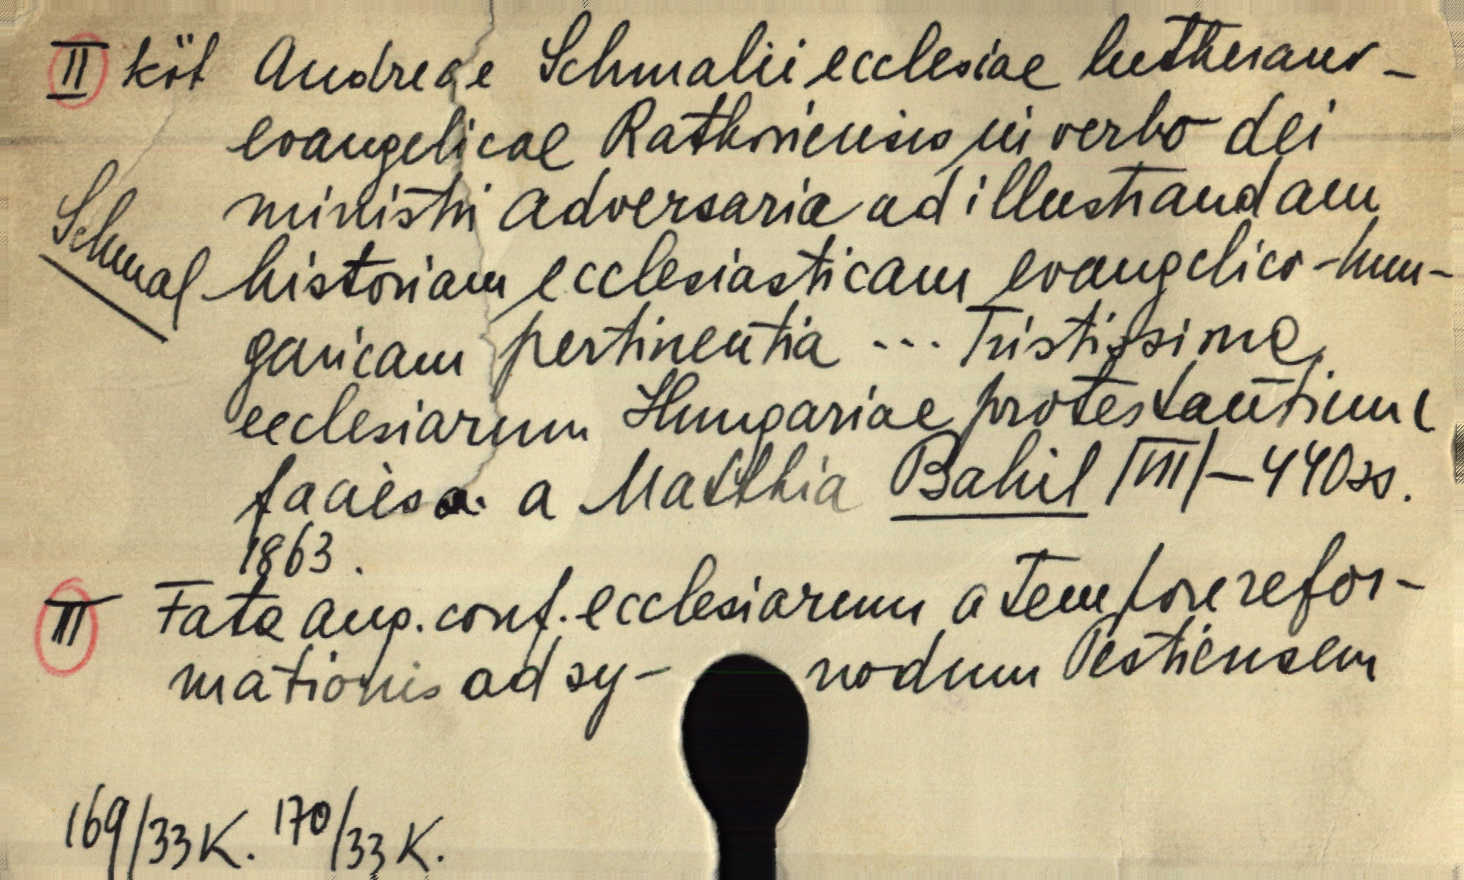 II köt Andreae Schmalii ecclesiae lutherano-
evangelicae Rathoniensis in verbo dei
ministri adversaria ad illustrandam
Schmal
historiam ecclesiasticam evangelico-hun-
garicam pertinentia ... Tristissima
ecclesiarum Hungariae protestantium
facies a Matthia Bahil /III/ - 440 ss.
1863.
III Fata aug. conf. ecclesiarum a tempore refor-
mationis ad sy- nodum Pestiensem
169/33 K. 170/33 K.